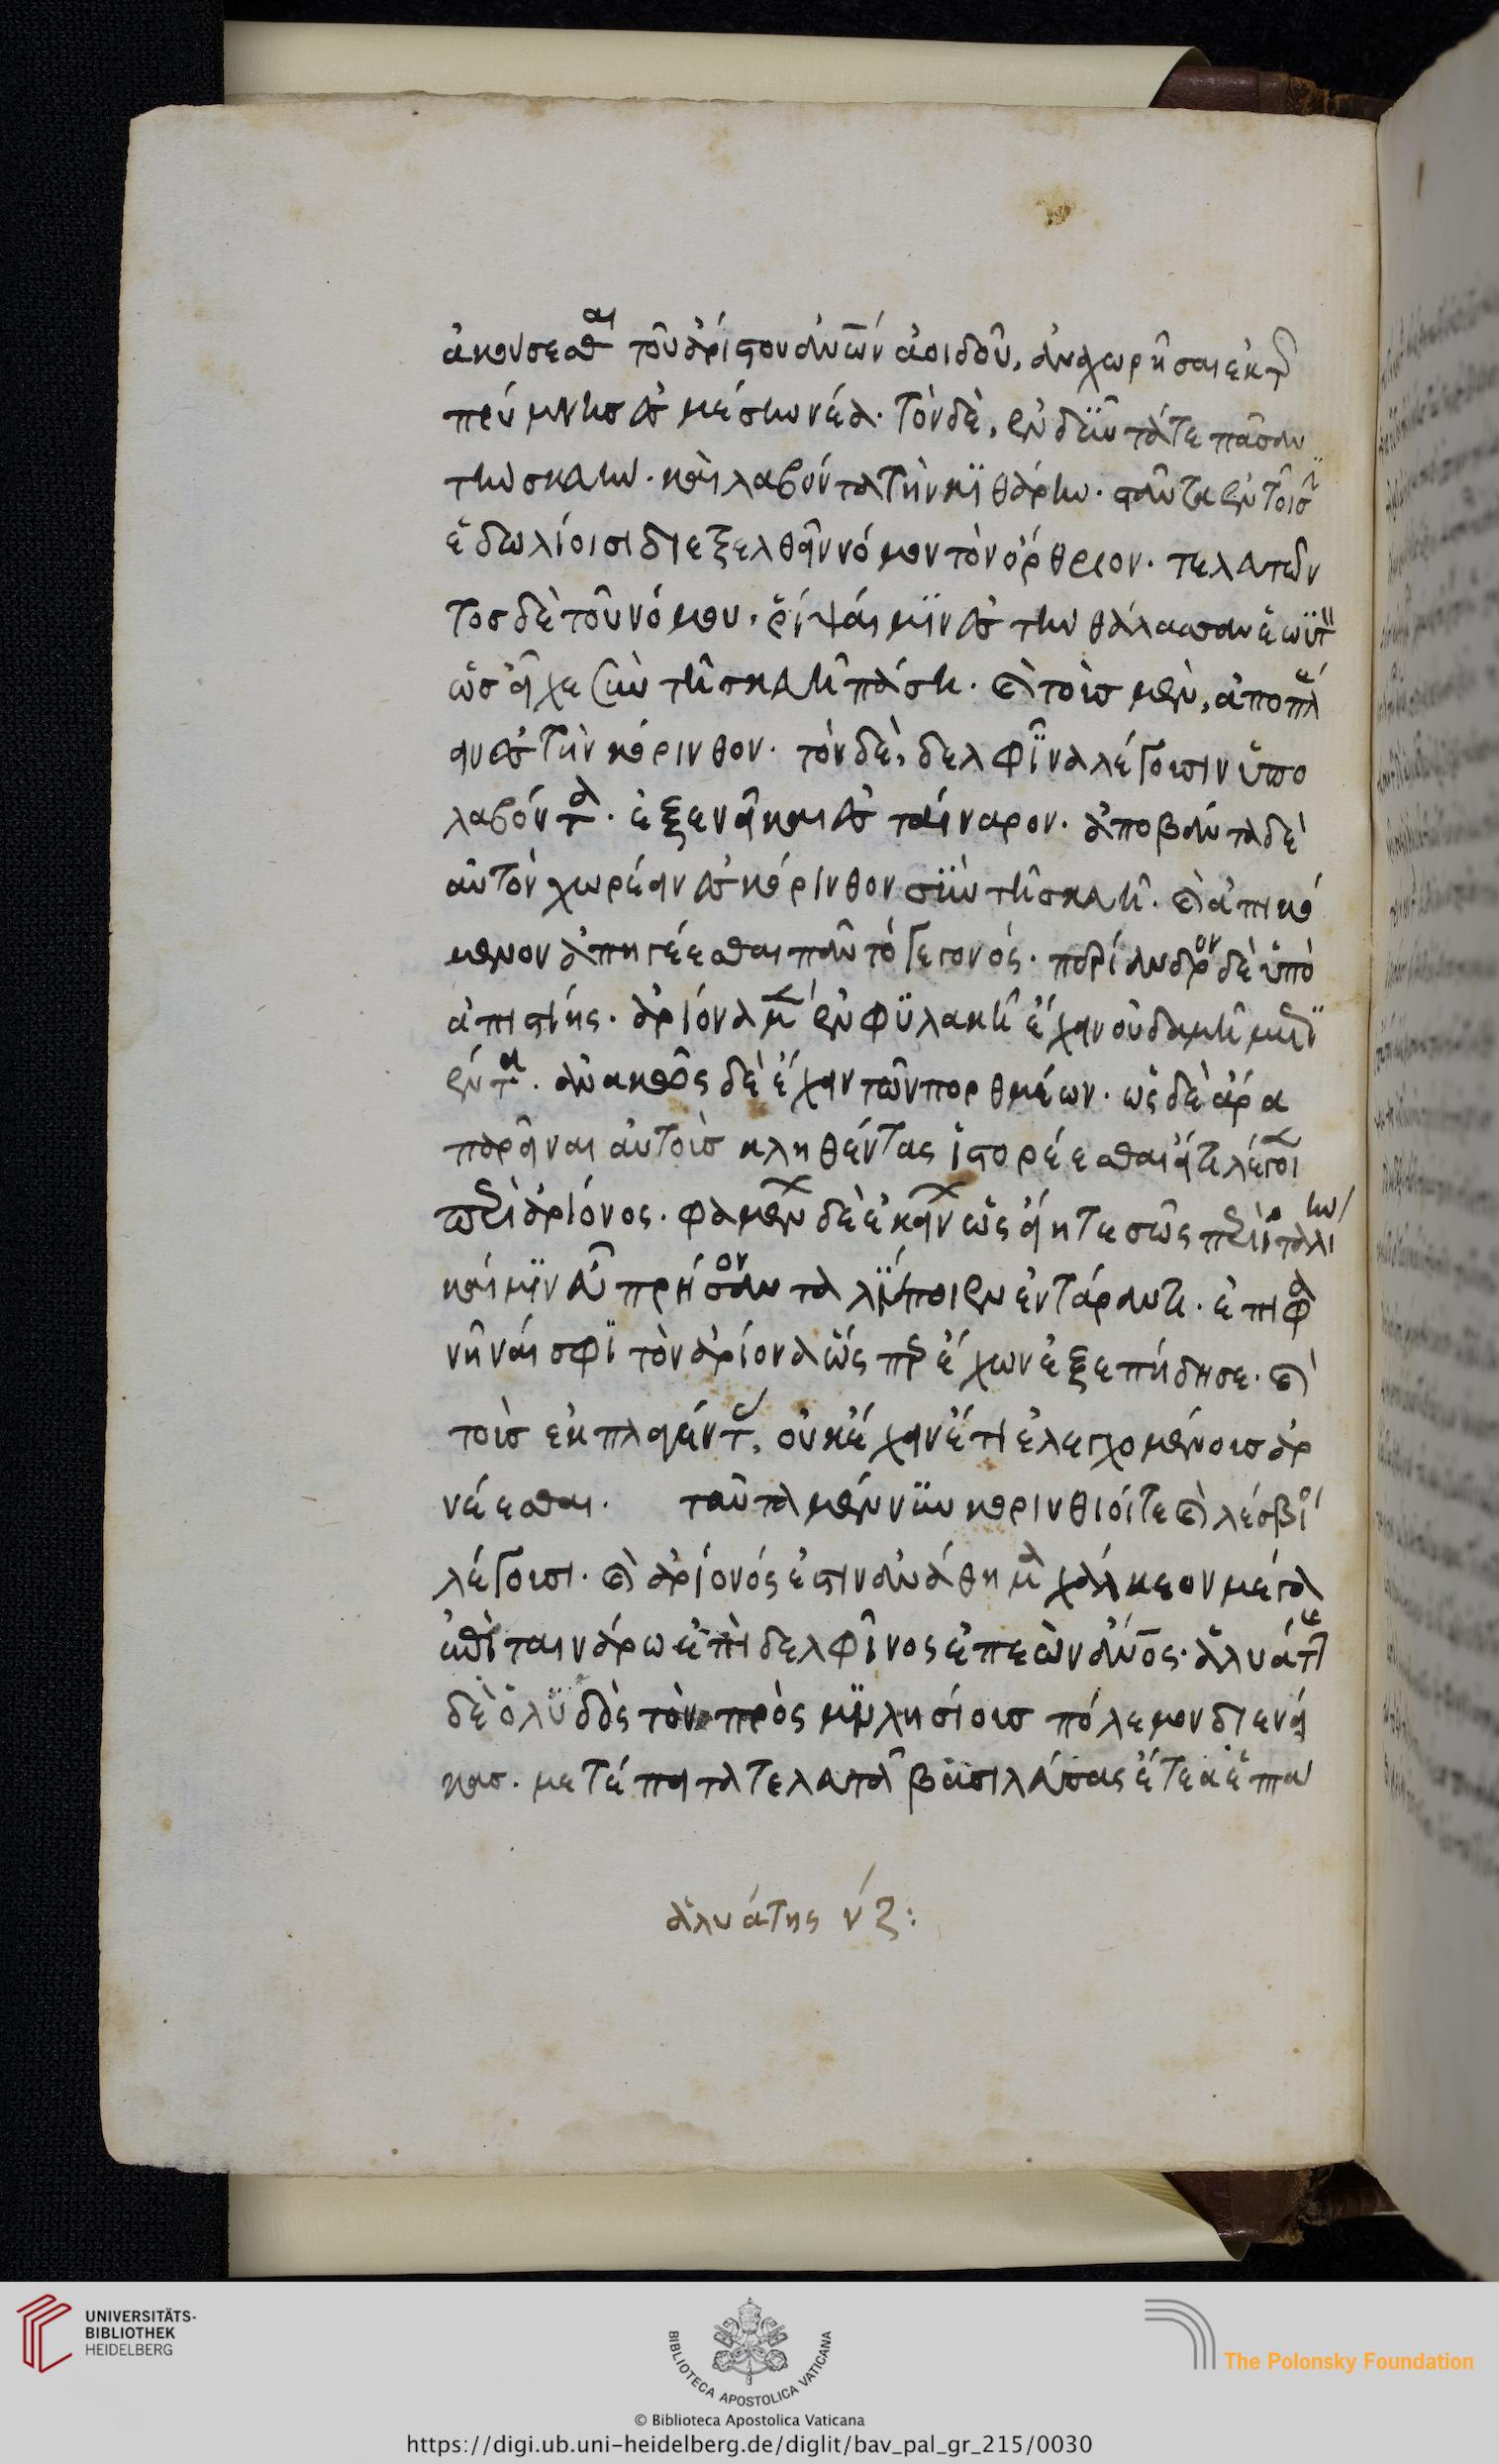 ἀκούσεσθαι τοῦ ἀρίστου ἀνων ἀοιδοῦ, ἀναχωρῆσαι ἐκ τῆς
πρύμνης εἰς μέσην νέα. τὸν δὲ, ἐνδύντα τε πᾶσαν
τὴν σκευὴν. καὶ λαβόντα τὴν κιθάρην. στάντα ἐν τοῖσι
ἑδωλίοισι διεξελθεῖν νόμον τὸν ὄρθριον. τελευτῶν
τος δὲ τοῦ νόμου. ῥίψαι μιν εἰς τὴν θάλασσαν ἑωυτὸν
ὡς εἶχε σὺν τῆ σκευῆ πάση. καὶ τοὺς μὲν, ἀποπλέ
ειν εἰς τὴν κόρινθον. τὸν δὲ, δελφῖνα λέγουσιν ὑπο
λαβόντα. ἐξενεῖκαι εἰς ταίναρον. ἀποβάντα δὲ
αὐτὸν χωρέειν εἰς κόρινθον σὺν τῆ σκευῆ. καὶ ἀπικό
μενον ἀπηγέεσθαι πᾶν τὸ γεγονός. περίανδρον δὲ ὑπὸ
ἀπιστίης. ἀρίονα μὲν ἐν φυλακῆ ἔχειν οὐδαμῆ μετι
έντα. ἀνακῶς δὲ ἔχειν τῶν πορθμέων. ὡς δὲ ἄρα
παρεῖναι αὐτοὺς κληθέντας ἱστορέεσθαι εἴ τι λέγοιεν
περὶ ἀρίονος. φαμένων δὲ ἐκείνων ὡς εἴη τε σῶς περὶ ἰταλίην
καί μιν εὖ πρήσσοντα λίποιεν ἐν τάραντι. ἐπιφα
νῆναί σφι τὸν ἀρίονα ὥσπερ ἔχων ἐξεπήδησε. καὶ
τοὺς ἐκπλαγέντας, οὐκ ἔχειν ἔτι ἐλεγχομένους ἀρ
νέεσθαι. ταῦτα μέν νυν κορίνθιοί τε καὶ λέσβιοι
λέγουσι. καὶ ἀρίονός ἐστιν ἀνάθημα χάλκεον μέγα
ἐπὶ ταινάρω ἐπὶ δελφῖνος ἐπεὼν ἄνος. ἀλυάττης
δὲ ὁ λυδὸς τὸν πρὸς μιλησίους πόλεμον διενεί
κας. μετέπειτα τελευτᾶ βασιλεύσας ἔτεα ἑπτὰ
ἀλυάτης νζ:
UNIVERSITÄTS-
BIBLIOTHEK
HEIDELBERG
BIBLIOTECA APOSTOLICA VATICANA
The Polonsky Foundation
© Biblioteca Apostolica Vaticana
https://digi.ub.uni-heidelberg.de/diglit/bav_pal_gr_215/0030